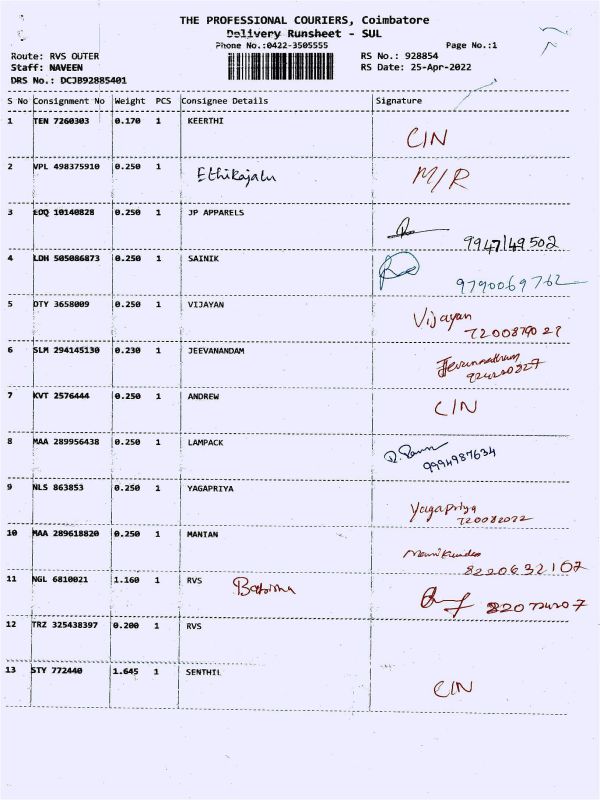 THE PROFESSIONAL COURIERS, Coimbatore
Delivery Runsheet - SUL
Phone No.:0422-3505555 Page No.:1
Route: RVS OUTER RS No.: 928854
Staff: NAVEEN RS Date: 25-Apr-2022
DRS No.: DCJB92885401
S No Consignment No Weight PCS Consignee Details Signature
1 TEN 7260303 0.170 1 KEERTHI C/N
2 VPL 498375910 0.250 1 Ethikajalu M/R
3 EOQ 10140828 0.250 1 JP APPARELS 9947149502
4 LDH 505086873 0.250 1 SAINIK 9790069762
5 OTY 3658009 0.250 1 VIJAYAN Vijayan
7200879027
6 SLM 294145130 0.230 1 JEEVANANDAM
7 KVT 2576444 0.250 1 ANDREW C/N
8 MAA 289956438 0.250 1 LAMPACK
9994987634
9 NLS 863853 0.250 1 YAGAPRIYA Yagapriya
720082022
10 MAA 289618820 0.250 1 MANIAN
8220632107
11 NGL 6810021 1.160 1 RVS
12 TRZ 325438397 0.200 1 RVS
13 STY 772440 1.645 1 SENTHIL C/N